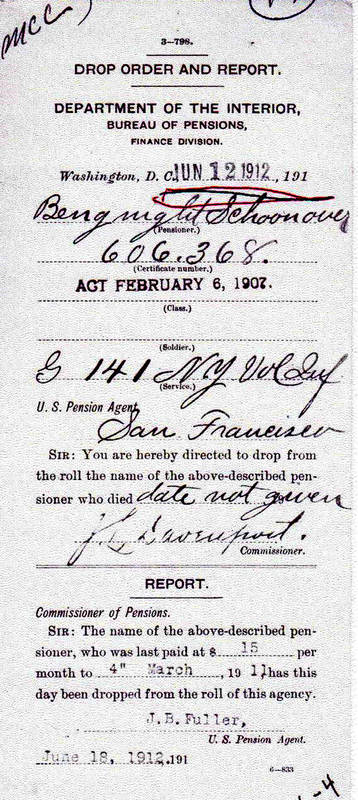 McC
3—798.
DROP ORDER AND REPORT.
DEPARTMENT OF THE INTERIOR,
BUREAU OF PENSIONS,
FINANCE DIVISION.
Washington, D. C. JUN 12 1912, 191
Schoonover
(Pensioner.)
606.368.
(Certificate number.)
ACT FEBRUARY 6, 1907.
(Class.)
(Soldier.)
G 141 NY Vol Inf
(Service.)
U. S. Pension Agent,
San Francisco
SIR: You are hereby directed to drop from
the roll the name of the above-described pen-
sioner who died date not given
J L Davenport.
Commissioner.
REPORT.
Commissioner of Pensions.
SIR: The name of the above-described pen-
sioner, who was last paid at $ 15 per
month to 4" March, 191 1, has this
day been dropped from the roll of this agency.
J.B. Fuller,
U. S. Pension Agent.
June 18, 1912. 191
6—833